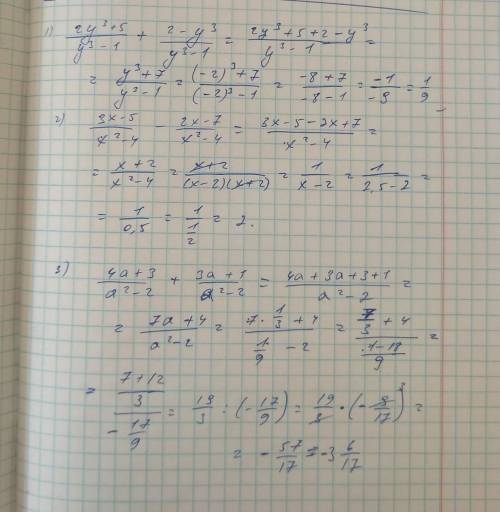 1) (2y³+5)/(y³-1) + (2-y³)/(y³-1) = (2y³+5+2-y³)/(y³-1) =
= (y³+7)/(y³-1) = ((-2)³+7)/((-2)³-1) = (-8+7)/(-8-1) = (-1)/(-9) = 1/9
2) (3x-5)/(x²-4) - (2x-7)/(x²-4) = (3x-5-2x+7)/(x²-4) =
= (x+2)/(x²-4) = (x+2)/((x-2)(x+2)) = 1/(x-2) = 1/(2,5-2) =
= 1/0,5 = 1/(1/2) = 2.
3) (4a+3)/(a²-2) + (3a+1)/(a²-2) = (4a+3a+3+1)/(a²-2) =
= (7a+4)/(a²-2) = (7·1/3+4)/(1/9-2) = (7/3+4)/((1-18)/9) =
= ((7+12)/3)/(-17/9) = 19/3 : (-17/9) = 19/3 · (-9/17)³ =
= -57/17 = -3 6/17